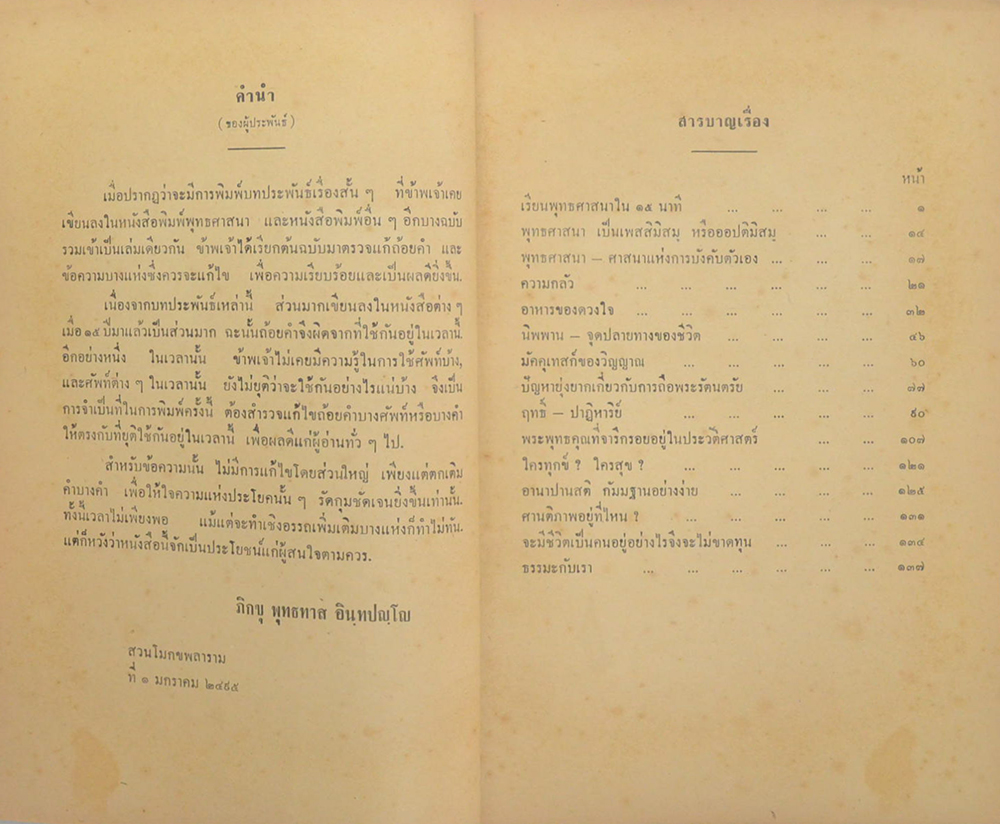 คำนำ
( ของผู้ประพันธ์ )
เมื่อปรากฏว่าจะมีการพิมพ์บทประพันธ์เรื่องสั้น ๆ ที่ข้าพเจ้าเคย
เขียนลงในหนังสือพิมพ์พุทธศาสนา และหนังสือพิมพ์อื่น ๆ อีกบางฉบับ
รวมเข้าเป็นเล่มเดียวกัน ข้าพเจ้าได้เรียกต้นฉบับมาตรวจแก้ถ้อยคำ และ
ข้อความบางแห่งซึ่งควรจะแก้ไข เพื่อความเรียบร้อยและเป็นผลดียิ่งขึ้น.
เนื่องจากบทประพันธ์เหล่านี้ ส่วนมากเขียนลงในหนังสือต่าง ๆ
เมื่อ ๑๕ ปีมาแล้วเป็นส่วนมาก ฉะนั้นถ้อยคำจึงผิดจากที่ใช้กันอยู่ในเวลานี้
อีกอย่างหนึ่ง ในเวลานั้น ข้าพเจ้าไม่เคยมีความรู้ในการใช้ศัพท์บ้าง,
และศัพท์ต่าง ๆ ในเวลานั้น ยังไม่ยุติว่าจะใช้กันอย่างไรแน่บ้าง จึงเป็น
การจำเป็นที่ในการพิมพ์ครั้งนี้ ต้องสำรวจแก้ไขถ้อยคำบางศัพท์หรือบางคำ
ให้ตรงกับที่ยุติใช้กันอยู่ในเวลานี้ เพื่อผลดีแก่ผู้อ่านทั่ว ๆ ไป.
สำหรับข้อความนั้น ไม่มีการแก้ไขโดยส่วนใหญ่ เพียงแต่ตกเติม
คำบางคำ เพื่อให้ใจความแห่งประโยคนั้น ๆ รัดกุมชัดเจนยิ่งขึ้นเท่านั้น.
ทั้งนี้เวลาไม่เพียงพอ แม้แต่จะทำเชิงอรรถเพิ่มเติมบางแห่งก็ทำไม่ทัน.
แต่ก็หวังว่าหนังสือนี้จักเป็นประโยชน์แก่ผู้สนใจตามควร.
ภิกขุ พุทธทาส อินฺทปญฺโญ
สวนโมกขพลาราม
ที่ ๑ มกราคม ๒๔๙๕
สารบาญเรื่อง
หน้า
เรียนพุทธศาสนาใน ๑๕ นาที ... ... ... ... ๑
พุทธศาสนา เป็นเพสสิมิสมฺ หรือออปติมิสมฺ ... ... ๑๔
พุทธศาสนา – ศาสนาแห่งการบังคับตัวเอง ... ... ... ๑๗
ความกลัว ... ... ... ... ... ... ๒๑
อาหารของดวงใจ ... ... ... ... ... ๓๒
นิพพาน – จุดปลายทางของชีวิต ... ... ... ... ๔๖
มัคคุเทสก์ของวิญญาณ ... ... ... ... ... ๖๐
ปัญหายุ่งยากเกี่ยวกับการถือพระรัตนตรัย ... ... ... ๗๗
ฤทธิ์ – ปาฏิหาริย์ ... ... ... ... ... ๙๐
พระพุทธคุณที่จารึกรอยอยู่ในประวัติศาสตร์ ... ... ๑๐๗
ใครทุกข์ ? ใครสุข ? ... ... ... ... ... ๑๒๑
อานาปานสติ กัมมฐานอย่างง่าย ... ... ... ... ๑๒๕
ศานติภาพอยู่ที่ไหน ? ... ... ... ... ... ๑๓๑
จะมีชีวิตเป็นคนอยู่อย่างไรจึงจะไม่ขาดทุน ... ... ... ๑๓๔
ธรรมะกับเรา ... ... ... ... ... ... ๑๓๗